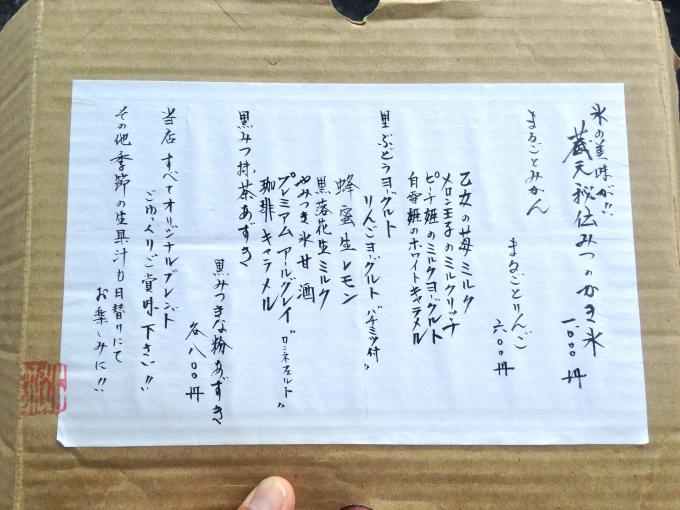 氷の美味が!!
蔵元秘伝みつのかき氷
一、〇〇〇円
まるごとみかん
まるごとりんご
六〇〇円
乙女の苺ミルク
メロン王子のミルクリッチ
ピーチ姫のミルクヨーグルト
白雪姫のホワイトキャラメル
里ぶどうヨーグルト
りんごヨーグルト“ハチミツ付”
蜂蜜生レモン
黒落花生ミルク
やみき氷甘酒
プレミアムアールグレイ“ロンネフェルト”
珈琲キャラメル
黒みつ抹茶あずき
黒みつきな粉あずき
各八〇〇円
当店すべてオリジナルブレンド
ごゆくりご賞味下さい!!
その他季節の生果汁も日替りにて
お楽しみに!!